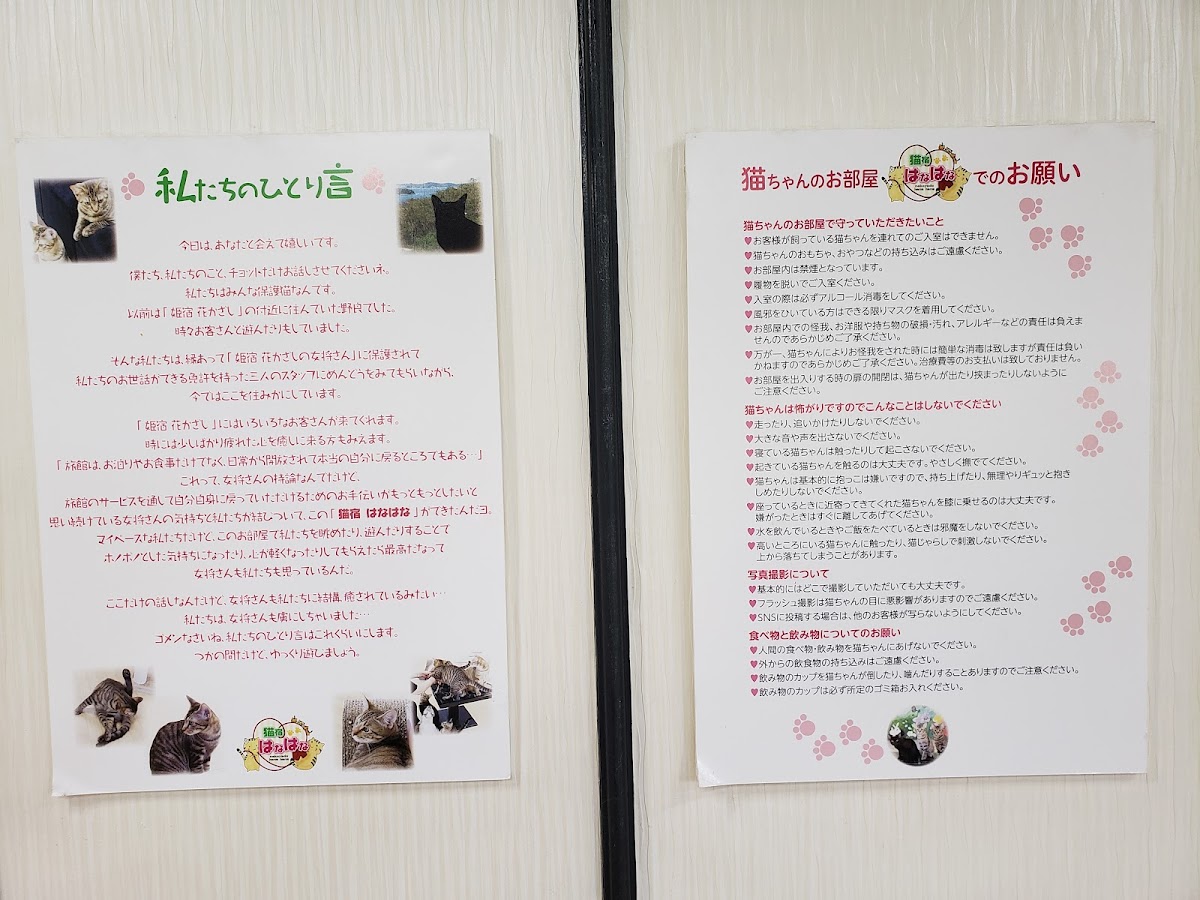 私たちのひとり言
今日は、あなたと会えて嬉しいです。
僕たち、私たちのこと、チョットだけお話しさせてくださいネ。
私たちはみんな保護猫なんです。
以前は「姫宿 花かざし」の付近に住んでいた野良でした。
時々お客さんと遊んだりもしていました。
そんな私たちは、縁あって「姫宿 花かざしの女将さん」に保護されて
私たちのお世話ができる免許を持った三人のスタッフにめんどうをみてもらいながら、
今ではここを住みかにしています。
「姫宿 花かざし」にはいろいろなお客さんが来てくれます。
時には少しばかり疲れた心を癒しに来る方もみえます。
「旅館は、お泊りやお食事だけでなく、日常から開放されて本当の自分に戻るところでもある…」
これって、女将さんの持論なんだけど、
旅館のサービスを通して自分自身に戻っていただけるためのお手伝いがもっともっとしたいと
思い続けている女将さんの気持ちと私たちが結びついて、この「猫宿 はなはな」ができたんだヨ。
マイペースな私たちだけど、このお部屋で私たちを眺めたり、遊んだりすることで
ホノボノとした気持ちになったり、心が軽くなったりしてもらえたら最高だなって
女将さんも私たちも思っているんだ。
ここだけの話しなんだけど、女将さんも私たちに結構、癒されているみたい…
私たちは、女将さんも虜にしちゃいました…
ゴメンなさいね、私たちのひとり言はこれくらいにします。
つかの間だけど、ゆっくり遊びましょう。
猫宿
はなはな
猫ちゃんのお部屋 猫宿 はなはな でのお願い
猫ちゃんのお部屋で守っていただきたいこと
♥お客様が飼っている猫ちゃんを連れてのご入室はできません。
♥猫ちゃんのおもちゃ、おやつなどの持ち込みはご遠慮ください。
♥お部屋内は禁煙となっています。
♥履物を脱いでご入室ください。
♥入室の際は必ずアルコール消毒をしてください。
♥風邪をひいている方はできる限りマスクを着用してください。
♥お部屋内での怪我、お洋服や持ち物の破損・汚れ、アレルギーなどの責任は負えま
せんのであらかじめご了承ください。
♥万が一、猫ちゃんによりお怪我をされた時には簡単な消毒は致しますが責任は負い
かねますのであらかじめご了承ください。治療費等のお支払いは致しておりません。
♥お部屋を出入りする時の扉の開閉は、猫ちゃんが出たり挟まったりしないように
ご注意ください。
猫ちゃんは怖がりですのでこんなことはしないでください
♥走ったり、追いかけたりしないでください。
♥大きな音や声を出さないでください。
♥寝ている猫ちゃんは触ったりして起こさないでください。
♥起きている猫ちゃんを触るのは大丈夫です。やさしく撫でてください。
♥猫ちゃんは基本的に抱っこは嫌いですので、持ち上げたり、無理やりギュッと抱き
しめたりしないでください。
♥座っているときに近寄ってきてくれた猫ちゃんを膝に乗せるのは大丈夫です。
嫌がったときはすぐに離してあげてください。
♥水を飲んでいるときやご飯をたべているときは邪魔をしないでください。
♥高いところにいる猫ちゃんに触ったり、猫じゃらしで刺激しないでください。
上から落ちてしまうことがあります。
写真撮影について
♥基本的にはどこで撮影していただいても大丈夫です。
♥フラッシュ撮影は猫ちゃんの目に悪影響がありますのでご遠慮ください。
♥SNSに投稿する場合は、他のお客様が写らないようにしてください。
食べ物と飲み物についてのお願い
♥人間の食べ物・飲み物を猫ちゃんにあげないでください。
♥外からの飲食物の持ち込みはご遠慮ください。
♥飲み物のカップを猫ちゃんが倒したり、噛んだりすることありますのでご注意ください。
♥飲み物のカップは必ず所定のゴミ箱お入れください。